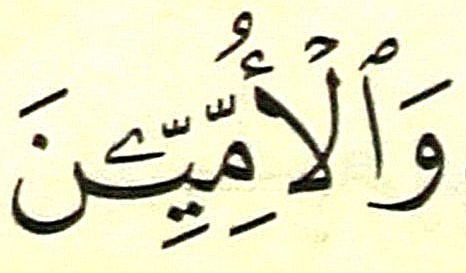 وَٱلْأُمِّيِّـۧنَ